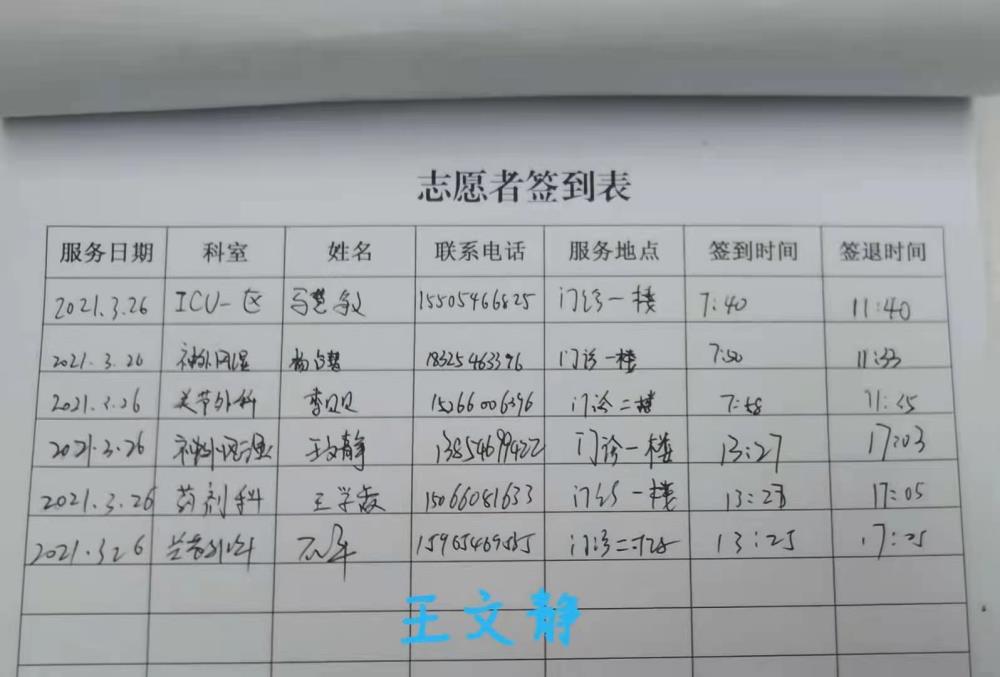 志愿者签到表
服务日期 科室 姓名 联系电话 服务地点 签到时间 签退时间
2021.3.26 ICU一区 15505466825 门诊一楼 7:40 11:40
2021.3.26 杨占慧 18325463396 门诊一楼 7:50 11:33
2021.3.26 关节外科 李贝贝 15266006396 门诊二楼 7:58
2021.3.26 王文静 13854699422 门诊一楼 13:27 17:03
2021.3.26 药剂科 15066081633 门诊一楼 17:05
2021.3.26 门诊二楼 13:25 17:25
王文静